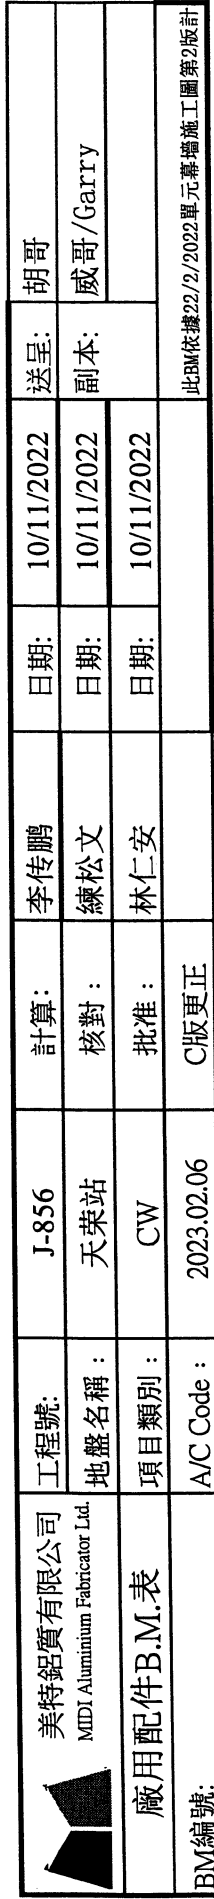 美特鋁質有限公司
MIDI Aluminium Fabricator Ltd.
工程號: J-856 計算: 李传鹏 日期: 10/11/2022 送呈: 胡哥
地盤名稱: 天荣站 核對: 練松文 日期: 10/11/2022 副本: 威哥/Garry
廠用配件B.M.表 項目類別: CW 批准: 林仁安 日期: 10/11/2022
BM編號: A/C Code: 2023.02.06 C版更正 此BM依據22/2/2022單元幕墻施工圖第2版計